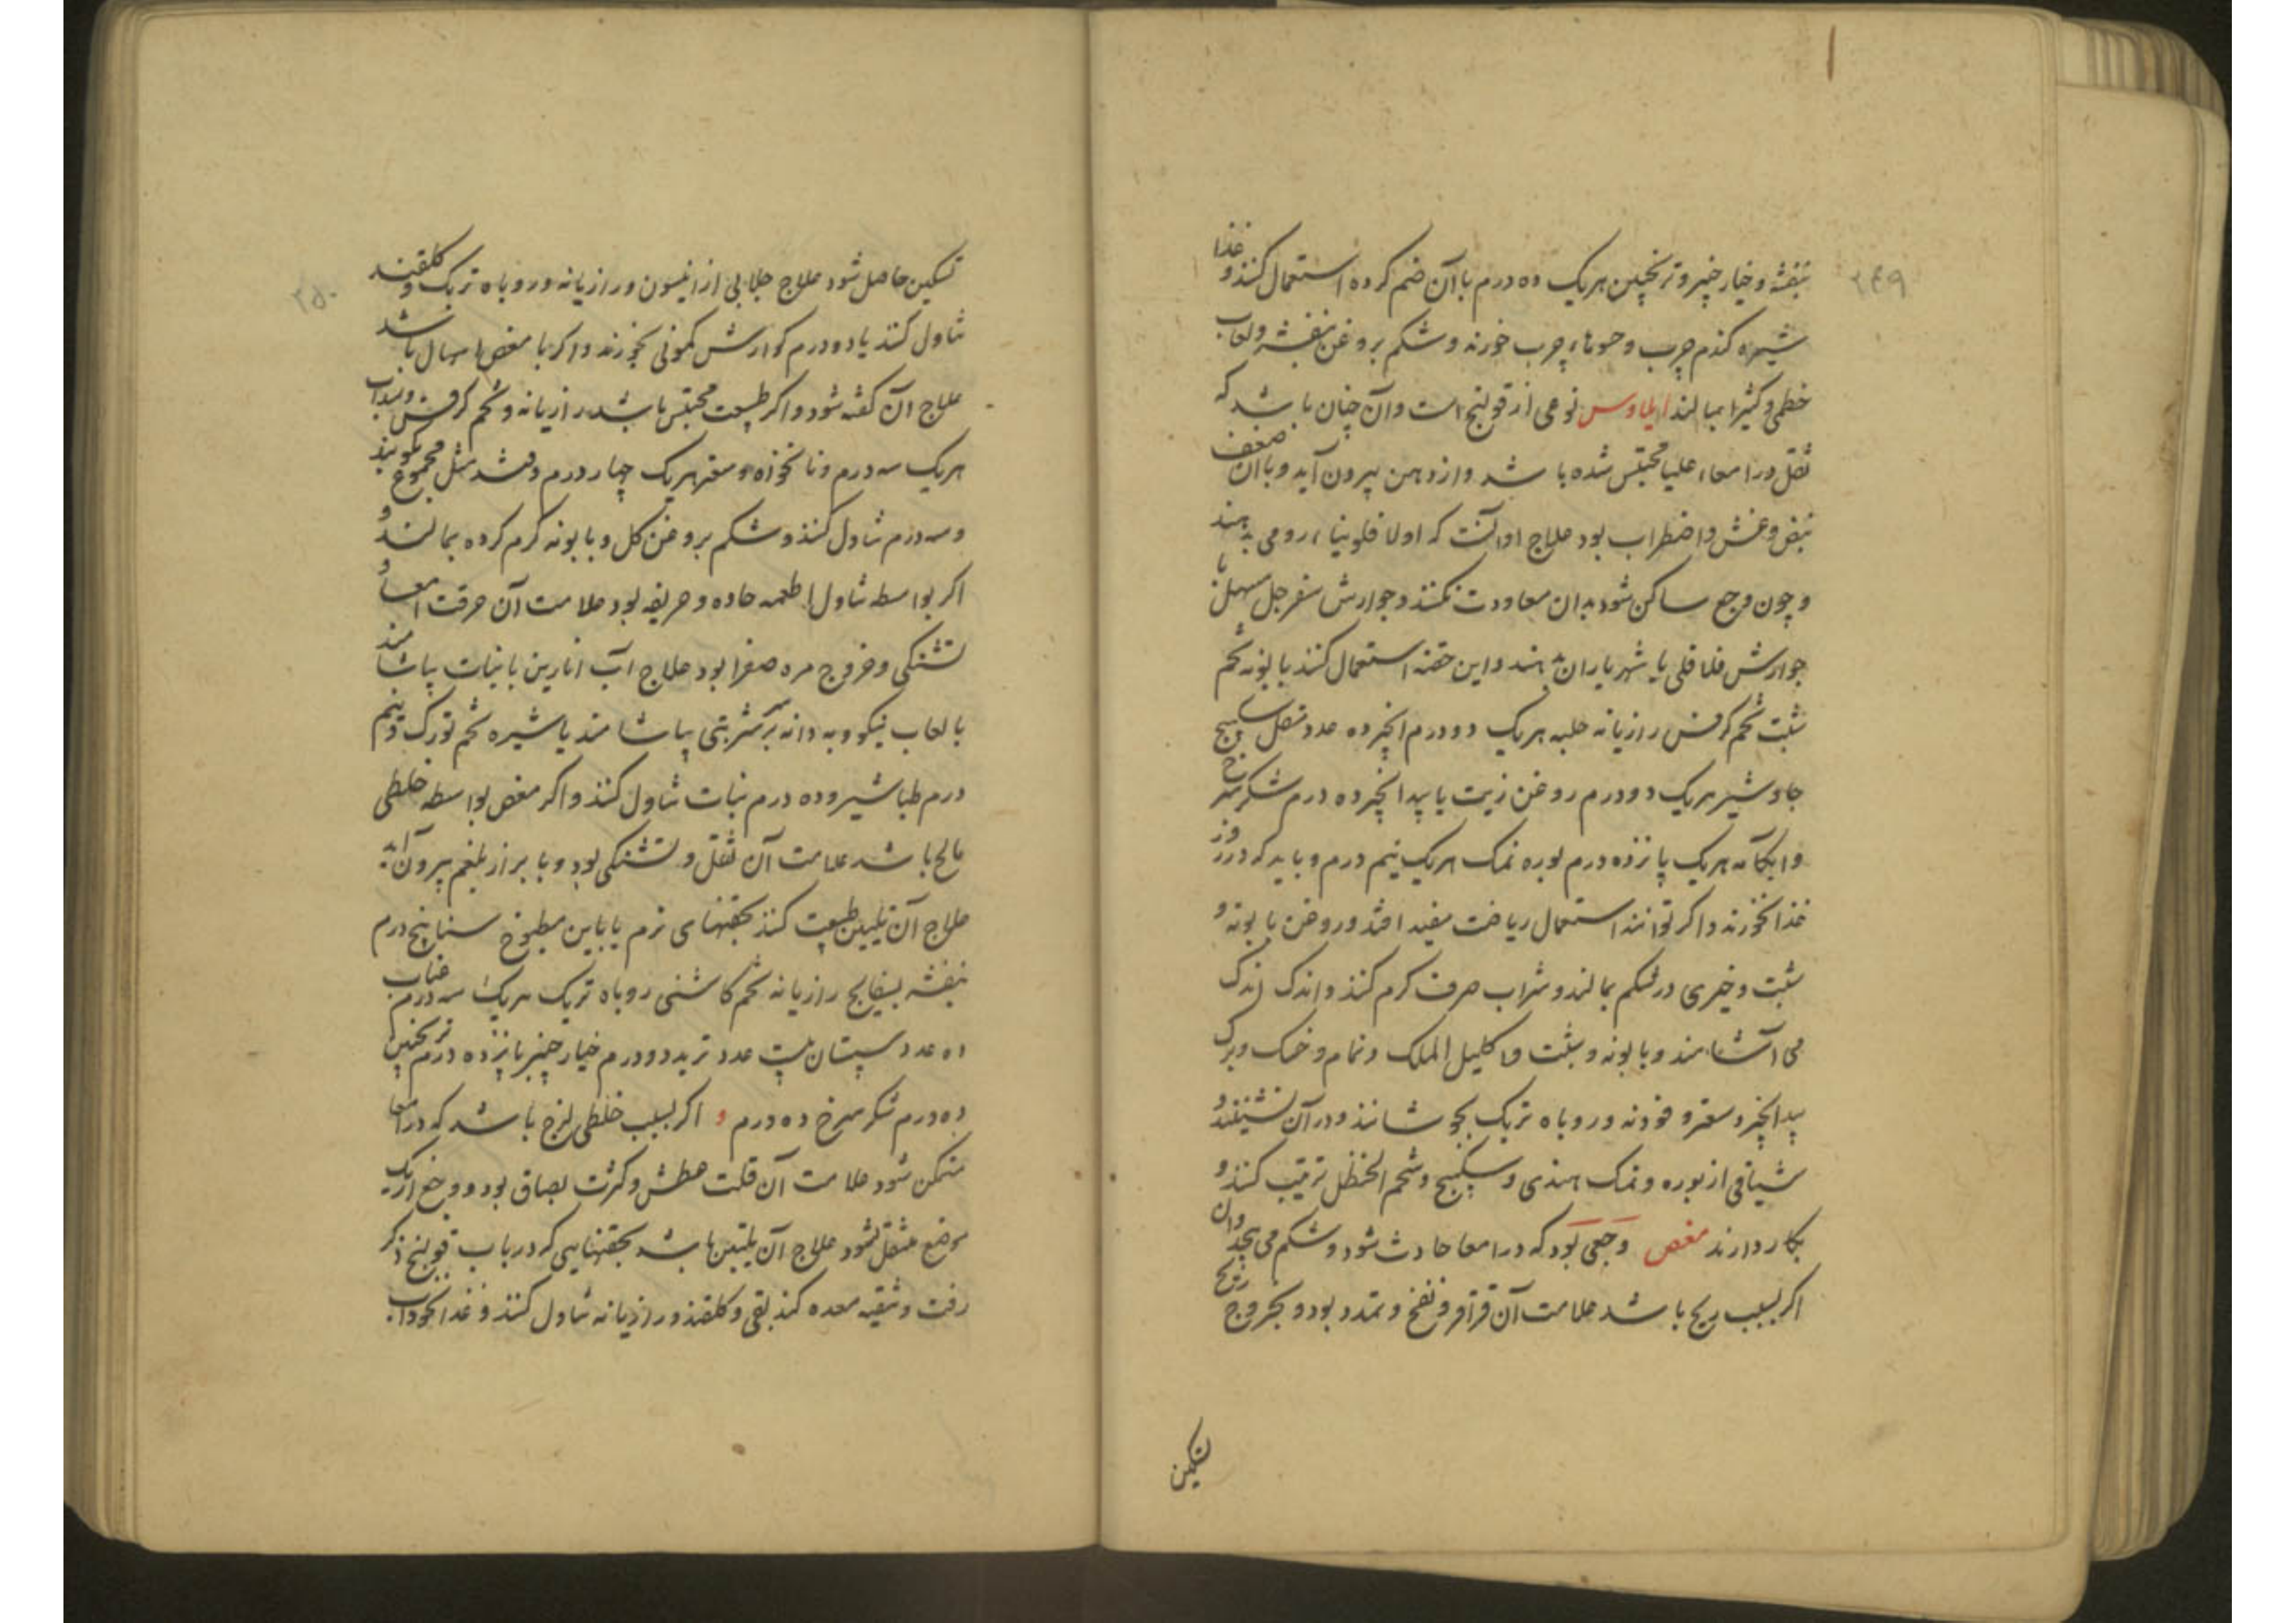 ۲۴۹
بنفشه و خیار چنبر و ترنجبین هریک ده درم با آن ضم کرده استعمال کنند و غذا
شیره گندم چرب و حبوها چرب خورند و شکم بروغن بنفشه و لعاب
خطمی و کثیرا بمالند ایلاوس نوعی از قولنج است و آن چنان باشد که
ثقل در امعاء علیا محتبس شده باشد و از دهن بیرون آید و با آن ضعف
نبض و غش و اضطراب بود علاج او آنست که اولا فلونیاء رومی بدهند
و چون وجع ساکن شود بدان معاودت نکنند و جوارش سفرجل مسهل یا
جوارش فلافلی یا شهریاران بدهند و این حقنه استعمال کنند بابونه تخم
شبت تخم کرفس رازیانه حلبه هریک دو درم انجیر ده عدد مقل سکبینج
جاوشیر هریک دو درم روغن زیت یا بیدانجیر ده درم شکر سرخ
و آبکامه هریک پانزده درم بوره نمک هریک نیم درم و باید که در روز
غذا نخورند و اگر توانند استعمال ریاضت مفید افتد و روغن بابونه و
شبت و خیری در شکم بمالند و شراب صرف گرم کنند و اندک اندک
می آشامند و بابونه و شبت و اکلیل الملک و نمام و خسک و برگ
بیدانجیر و سعتر و فودنه و روباه تربک بجوشانند و در آن نشینند و
شیافی از بوره و نمک هندی و سکبینج و شحم الحنظل ترتیب کنند و
بکار دارند مغص وجعی بود که در امعا حادث شود و شکم می پیچد و آن
اگر بسبب ریح باشد علامت آن قراقر و نفخ و تمدد بود و بخروج ریح
تسکین
۲۵۰
تسکین حاصل شود علاج جلابی از انیسون و رازیانه و روباه تربک و گلقند
تناول کنند یا دو درم کوارش کمونی بخورند و اگر با مغص اسهال باشد
علاج آن گفته شود و اگر طبیعت محتبس باشد رازیانه و تخم کرفس و سداب
هریک سه درم و نانخواه و سعتر هریک چهار درم و قند مثل مجموع بکوبند
و سه درم تناول کنند و شکم بروغن گل و بابونه گرم کرده بمالند و
اگر بواسطه تناول اطعمه حاده و حریفه بود علامت آن حرقت امعا و
تشنگی و خروج مره صفرا بود علاج آب انارین با نبات بیاشامند
با لعاب نیکو و به دانه بر سر شربتی بیاشامند یا شیره تخم تورک و نیم
درم طباشیر و ده درم نبات تناول کنند و اگر مغص بواسطه خلطی
مالح باشد علامت آن ثقل و تشنگی بود و با براز بلغم بیرون آید
علاج آن تلیین طبیعت کنند بحقنهای نرم یا باین مطبوخ سنا پنج درم
بنفشه بسفایج رازیانه تخم کاشنی روباه تربک هریک سه درم عناب
ده عدد سپستان بیست عدد تربد دو درم خیار چنبر پانزده درم ترنجبین
ده درم شکر سرخ ده درم و اگر بسبب خلطی لزج باشد که در امعا
متمکن شود علامت آن قلت عطش و کثرت بصاق بود و وجع از یک
موضع منتقل نشود علاج آن تلیین باشد بحقنهایی که در باب قولنج ذکر
رفت و تنقیه معده کنند بقی و گلقند و رازیانه تناول کنند و غذا نخودآب